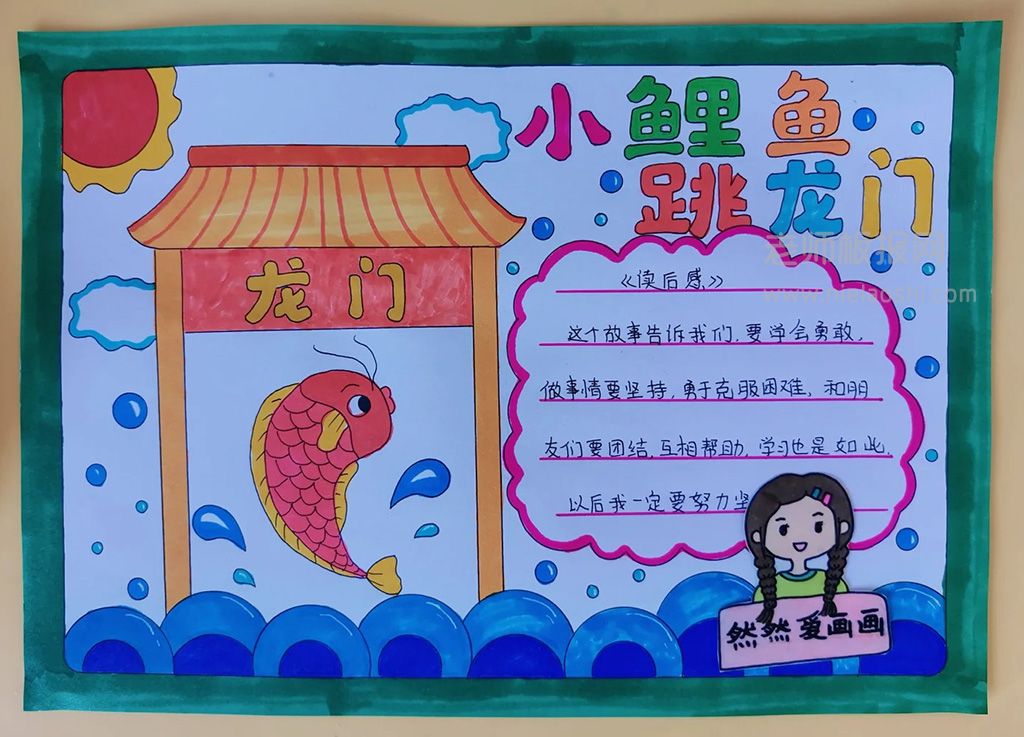 小鲤鱼
跳龙门
老师板报网
www.melaoshi.com
龙门
《读后感》
这个故事告诉我们,要学会勇敢,
做事情要坚持,勇于克服困难,和朋
友们要团结,互相帮助,学习也是如此,
以后我一定要努力坚
然然爱画画